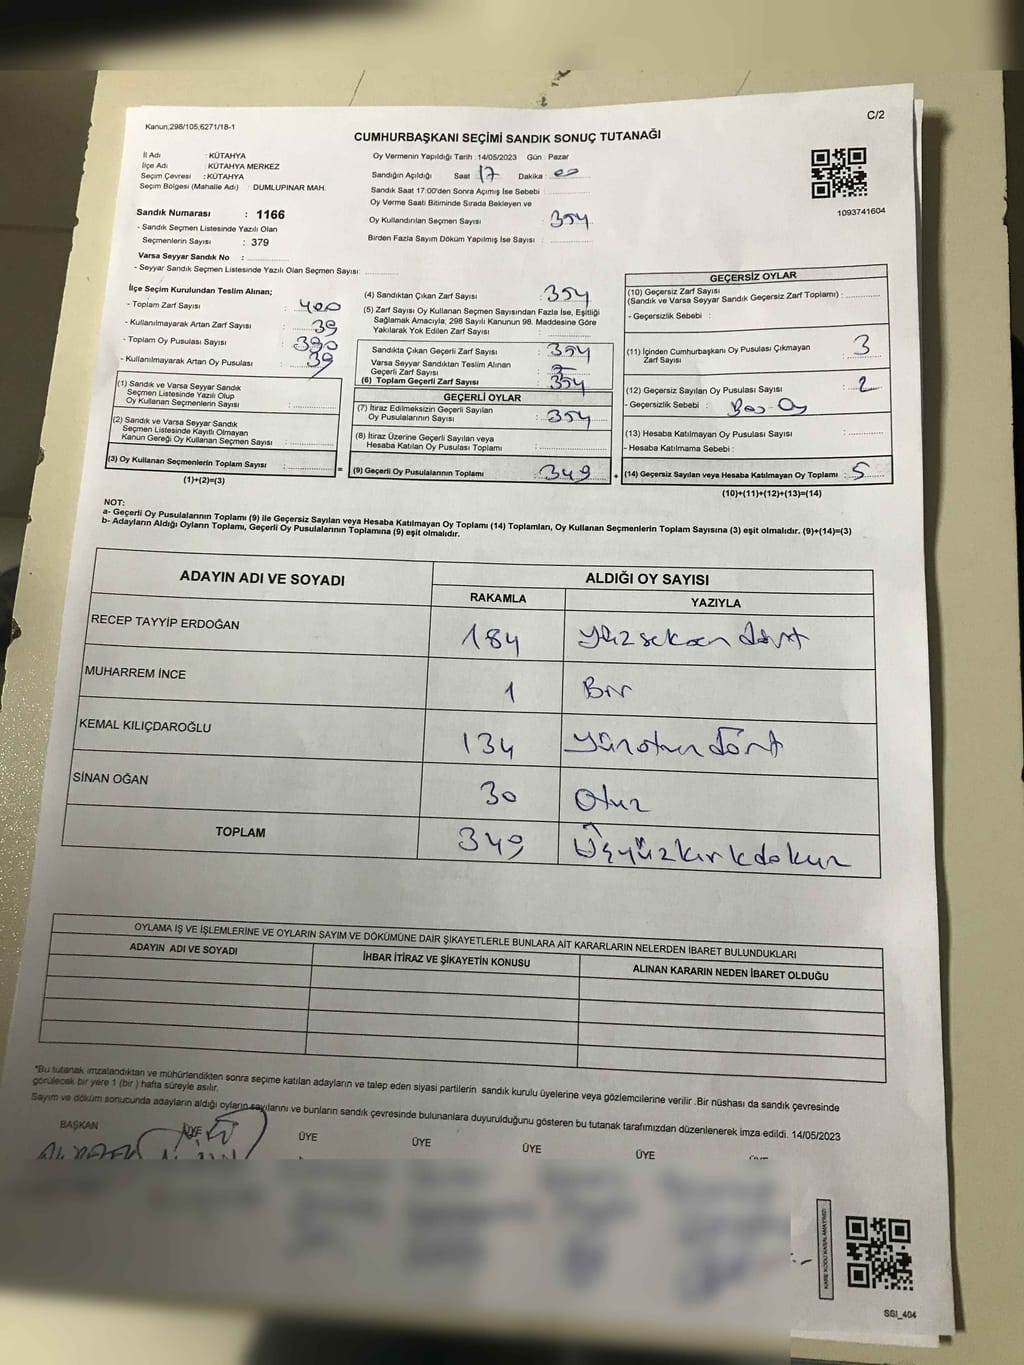 Kanun;298/105;6271/18-1
C/2
CUMHURBAŞKANI SEÇİMİ SANDIK SONUÇ TUTANAĞI
İl Adı : KÜTAHYA
İlçe Adı : KÜTAHYA MERKEZ
Seçim Çevresi : KÜTAHYA
Seçim Bölgesi (Mahalle Adı) : DUMLUPINAR MAH.
Oy Vermenin Yapıldığı Tarih : 14/05/2023 Gün : Pazar
Sandığın Açıldığı Saat : 17 Dakika : 00
Sandık Saat 17:00'den Sonra Açımış İse Sebebi :
Oy Verme Saati Bitiminde Sırada Bekleyen ve
Oy Kullandırılan Seçmen Sayısı : 354
Birden Fazla Sayım Döküm Yapılmış İse Sayısı :
1093741604
Sandık Numarası : 1166
- Sandık Seçmen Listesinde Yazılı Olan
Seçmenlerin Sayısı : 379
Varsa Seyyar Sandık No :
- Seyyar Sandık Seçmen Listesinde Yazılı Olan Seçmen Sayısı:
İlçe Seçim Kurulundan Teslim Alınan;
- Toplam Zarf Sayısı : 400
- Kullanılmayarak Artan Zarf Sayısı : 39
- Toplam Oy Pusulası Sayısı : 390
- Kullanılmayarak Artan Oy Pusulası : 39
(1) Sandık ve Varsa Seyyar Sandık
Seçmen Listesinde Yazılı Olup
Oy Kullanan Seçmenlerin Sayısı :
(2) Sandık ve Varsa Seyyar Sandık
Seçmen Listesinde Kayıtlı Olmayan
Kanun Gereği Oy Kullanan Seçmen Sayısı :
(3) Oy Kullanan Seçmenlerin Toplam Sayısı :
(1)+(2)=(3)
(4) Sandıktan Çıkan Zarf Sayısı : 354
(5) Zarf Sayısı Oy Kullanan Seçmen Sayısından Fazla İse, Eşitliği
Sağlamak Amacıyla; 298 Sayılı Kanunun 98. Maddesine Göre
Yakılarak Yok Edilen Zarf Sayısı :
Sandıkta Çıkan Geçerli Zarf Sayısı : 354
Varsa Seyyar Sandıktan Teslim Alınan
Geçerli Zarf Sayısı :
(6) Toplam Geçerli Zarf Sayısı : 354
=
GEÇERLİ OYLAR
(7) İtiraz Edilmeksizin Geçerli Sayılan
Oy Pusulalarının Sayısı : 354
(8) İtiraz Üzerine Geçerli Sayılan veya
Hesaba Katılan Oy Pusulası Toplamı :
(9) Geçerli Oy Pusulalarının Toplamı : 349
+
GEÇERSİZ OYLAR
(10) Geçersiz Zarf Sayısı
(Sandık ve Varsa Seyyar Sandık Geçersiz Zarf Toplamı) :
- Geçersizlik Sebebi :
(11) İçinden Cumhurbaşkanı Oy Pusulası Çıkmayan
Zarf Sayısı : 3
(12) Geçersiz Sayılan Oy Pusulası Sayısı : 2
- Geçersizlik Sebebi : Boş-Oy
(13) Hesaba Katılmayan Oy Pusulası Sayısı :
- Hesaba Katılmama Sebebi :
(14) Geçersiz Sayılan veya Hesaba Katılmayan Oy Toplamı : 5
(10)+(11)+(12)+(13)=(14)
NOT:
a- Geçerli Oy Pusulalarının Toplamı (9) ile Geçersiz Sayılan veya Hesaba Katılmayan Oy Toplamı (14) Toplamları, Oy Kullanan Seçmenlerin Toplam Sayısına (3) eşit olmalıdır. (9)+(14)=(3)
b- Adayların Aldığı Oyların Toplamı, Geçerli Oy Pusulalarının Toplamına (9) eşit olmalıdır.
ADAYIN ADI VE SOYADI ALDIĞI OY SAYISI
RAKAMLA YAZIYLA
RECEP TAYYİP ERDOĞAN 184 Yüzseksen dört
MUHARREM İNCE 1 Bir
KEMAL KILIÇDAROĞLU 134 Yüzotuz dört
SİNAN OĞAN 30 Otuz
TOPLAM 349 Üçyüzkırkdokuz
OYLAMA İŞ VE İŞLEMLERİNE VE OYLARIN SAYIM VE DÖKÜMÜNE DAİR ŞİKAYETLERLE BUNLARA AİT KARARLARIN NELERDEN İBARET BULUNDUKLARI
ADAYIN ADI VE SOYADI İHBAR İTİRAZ VE ŞİKAYETİN KONUSU ALINAN KARARIN NEDEN İBARET OLDUĞU
*Bu tutanak imzalandıktan ve mühürlendikten sonra seçime katılan adayların ve talep eden siyasi partilerin sandık kurulu üyelerine veya gözlemcilerine verilir .Bir nüshası da sandık çevresinde
görülecek bir yere 1 (bir ) hafta süreyle asılır.
Sayım ve döküm sonucunda adayların aldığı oyların sayılarını ve bunların sandık çevresinde bulunanlara duyurulduğunu gösteren bu tutanak tarafımızdan düzenlenerek imza edildi. 14/05/2023
BAŞKAN ÜYE ÜYE ÜYE ÜYE ÜYE
KARE KODU KARALAMAYINIZ!
SSI_404